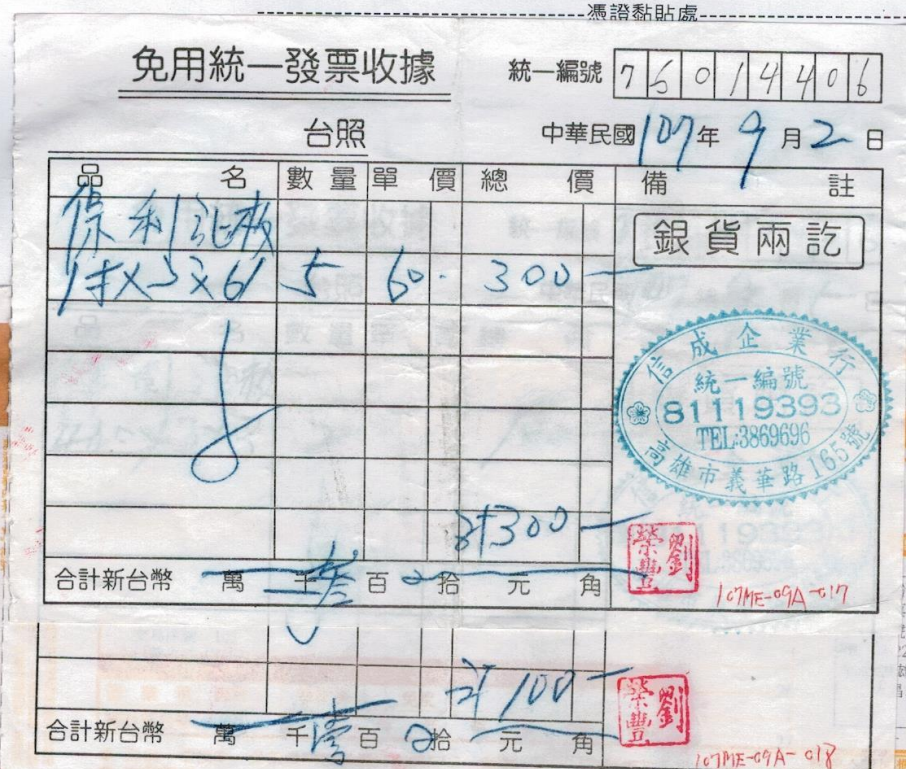 憑證黏貼處
免用統一發票收據
統一編號 76014406
台照
中華民國107年9月2日
品名 數量 單價 總價 備註
保利龍板
1才X5X61 5 60. 300—
銀貨兩訖
信成企業行
統一編號
81119393
TEL:3869696
高雄市義華路165號
計300—
合計新台幣 萬 千 叁 百 拾 元 角
劉榮豐
107ME-09A-017
計100—
合計新台幣 萬 千 壹 百 拾 元 角
劉榮豐
107ME-09A-018